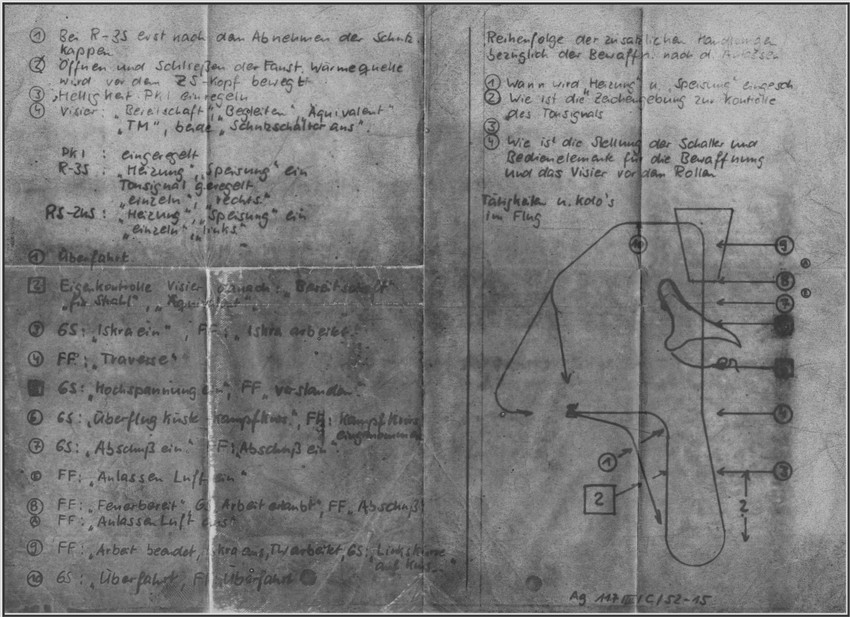 ① Bei R-3S erst nach dem Abnehmen der Schutz
kappen
② Öffnen und Schließen der Faust, Wärmequelle
wird vor dem ZS-Kopf bewegt
③ Helligkeit PKI einregeln
④ Visier: „Bereitschaft" „Begleiten" „Äquivalent"
„TM", beide „Schutzschalter aus".
PKI : eingeregelt
R-3S : „Heizung" „Speisung" ein
Tonsignal geregelt
„einzeln", „rechts."
RS-2US: „Heizung", „Speisung" ein
„einzeln", „links"
① Überfahrt
2 Eigenkontrolle Visier danach: „Bereitschaft"
„für Strahl",
③ GS: „Iskra ein", FF: „Iskra arbeitet."
④ FF: „Traverse"
GS: „Hochspannung ein", FF „verstanden"
⑥ GS: „Überflug Küste - Kampfkurs", FF: Kampfkurs
eingenommen
⑦ GS: „Abschuß ein" F: „Abschuß ein"
FF: „Anlassen Luft ein"
⑧ FF: „Feuerbereit" GS „Arbeit erlaubt", FF „Abschuß"
FF: „Anlassen Luft aus"
⑨ FF: „Arbeit beendet, Iskra aus, TM arbeitet, GS: „Linkskurve
auf Kurs..."
⑩ GS: „Überfahrt, F: „Überfahrt"
Reihenfolge der zusätzlichen Handlungen
bezüglich der Bewaffn. nach d. Anlassen
① Wann wird „Heizung" u. „Speisung" eingesch.
② Wie ist die Zeichengebung zur Kontrolle
des Tonsignals
③
④ Wie ist die Stellung der Schalter und
Bedienelemente für die Bewaffnung
und das Visier vor dem Rollen
Tätigkeiten u. Kdo's
im Flug
⑩
⑨
⑧
⑦
④
①
③
2
2
Ag 117/II/C/52-15